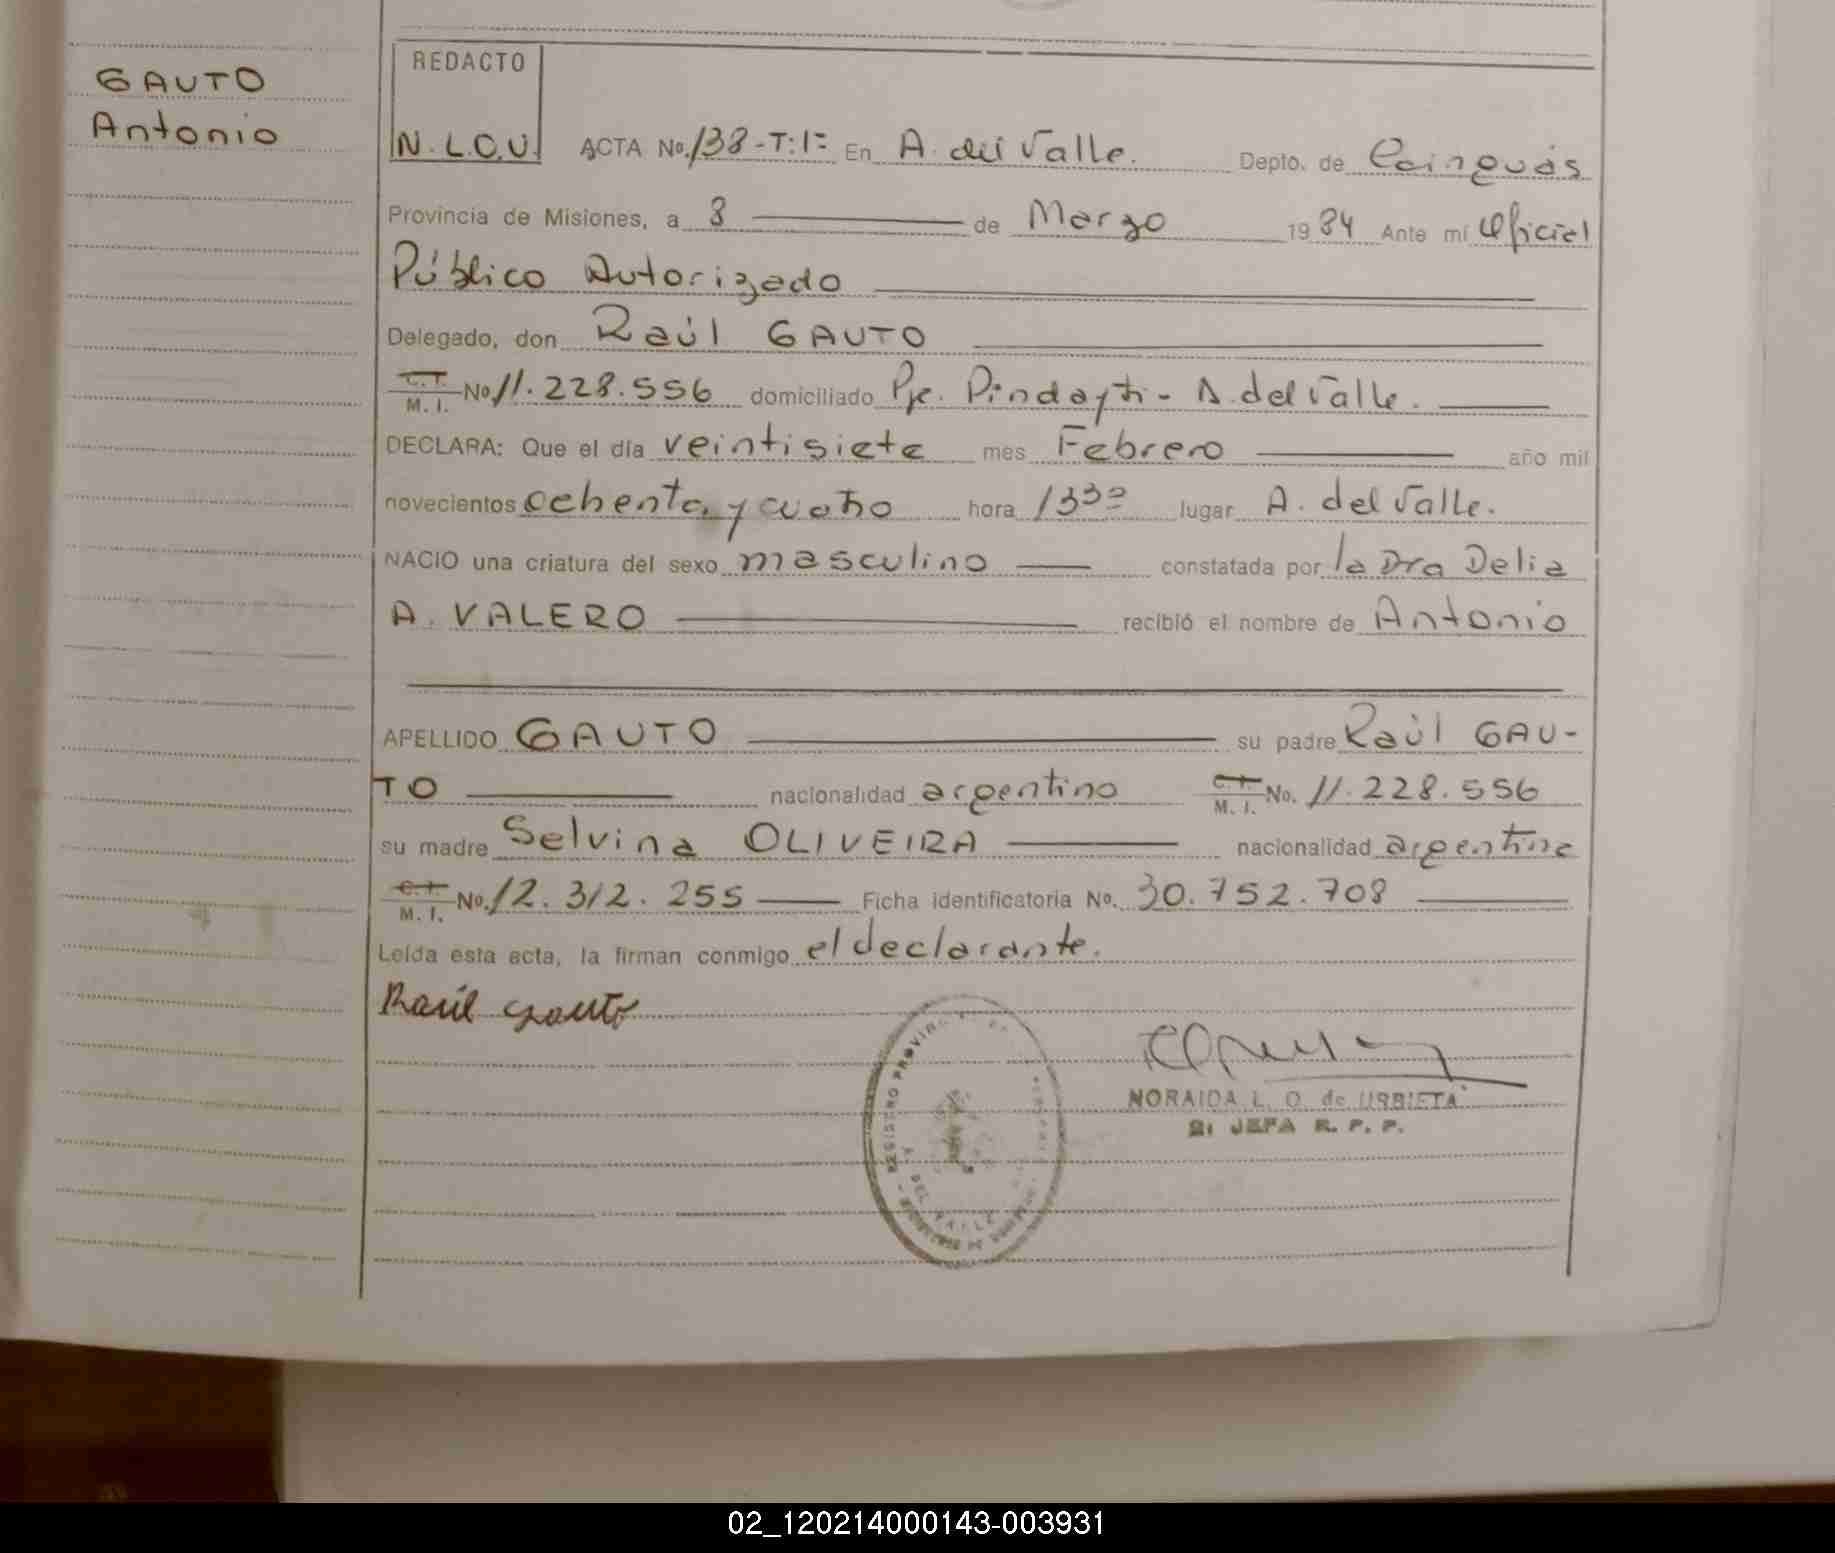 GAUTO
Antonio
REDACTO
N.L.O.U.
ACTA No. 138-T:1= En A. del Valle. Depto. de Cainguás
Provincia de Misiones, a 8 de Marzo 1984 Ante mi Oficial
Público Autorizado
Delegado, don Raúl GAUTO
C.I. M.I. No. 11.228.556 domiciliado Pje. Pindayti - A. del Valle.
DECLARA: Que el día veintisiete mes Febrero año mil
novecientos ochenta y cuatro hora 13³⁰ lugar A. del Valle.
NACIO una criatura del sexo masculino constatada por la Dra Delia
A. VALERO recibió el nombre de Antonio
APELLIDO GAUTO su padre Raúl GAU-
TO nacionalidad argentino C.I. M.I. No. 11.228.556
su madre Selvina OLIVEIRA nacionalidad argentina
C.I. M.I. No. 12.312.255 Ficha identificatoria No. 30.752.708
Leída esta acta, la firman conmigo el declarante.
Raúl Gauto
REGISTRO PROVINCIAL DE
DEL VALLE
NORAIDA L. O. de URBIETA
JEFA R. P. P.
02_120214000143-003931